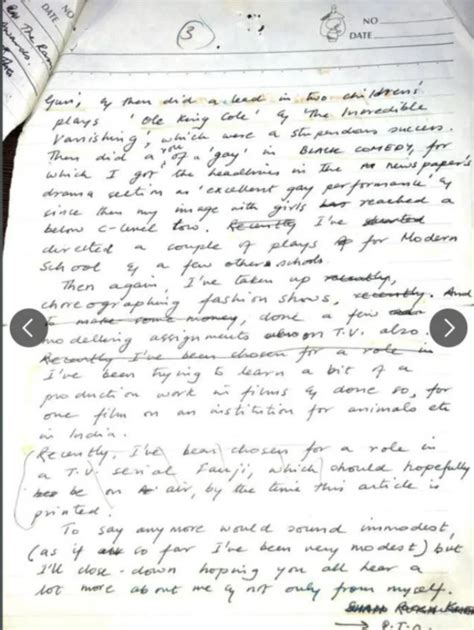 NO
DATE
3
NO
DATE
Gun', & then did a lead in two childrens'
plays 'Ole King Cole' & 'The Incredible
Vanishing', which were a stupendous success.
Then did a role of a 'gay' in BLACK COMEDY, for
which I got the headlines in the newspaper's
drama section as 'excellent gay performance' &
since then my image with girls has reached a
below C-level low. Recently I've started
directed a couple of plays for Modern
School & a few other schools.
Then again, I've taken up recently,
choreographing fashion shows, recently. And
to make some money, done a few
modelling assignments also on T.V. also.
Recently I've been chosen for a role in
I've been trying to learn a bit of
production work in films & done so, for
one film on an institution for animals etc
in India.
(Recently, I've been chosen for a role in
a T.V. serial Fauji, which should hopefully
be on air, by the time this article is
printed.
To say any more would sound immodest,
(as if so far I've been very modest) but
I'll close-down hoping you all hear a
lot more about me & not only from myself.
SHAH RUKH KHAN
→ P.T.O.